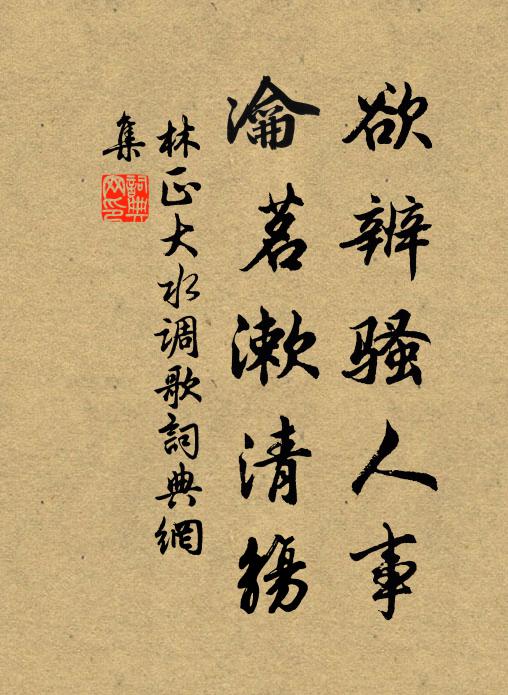 欲辨騷人事
瀹茗漱清觴
林正大水调歌詞典網
集
詞典網印